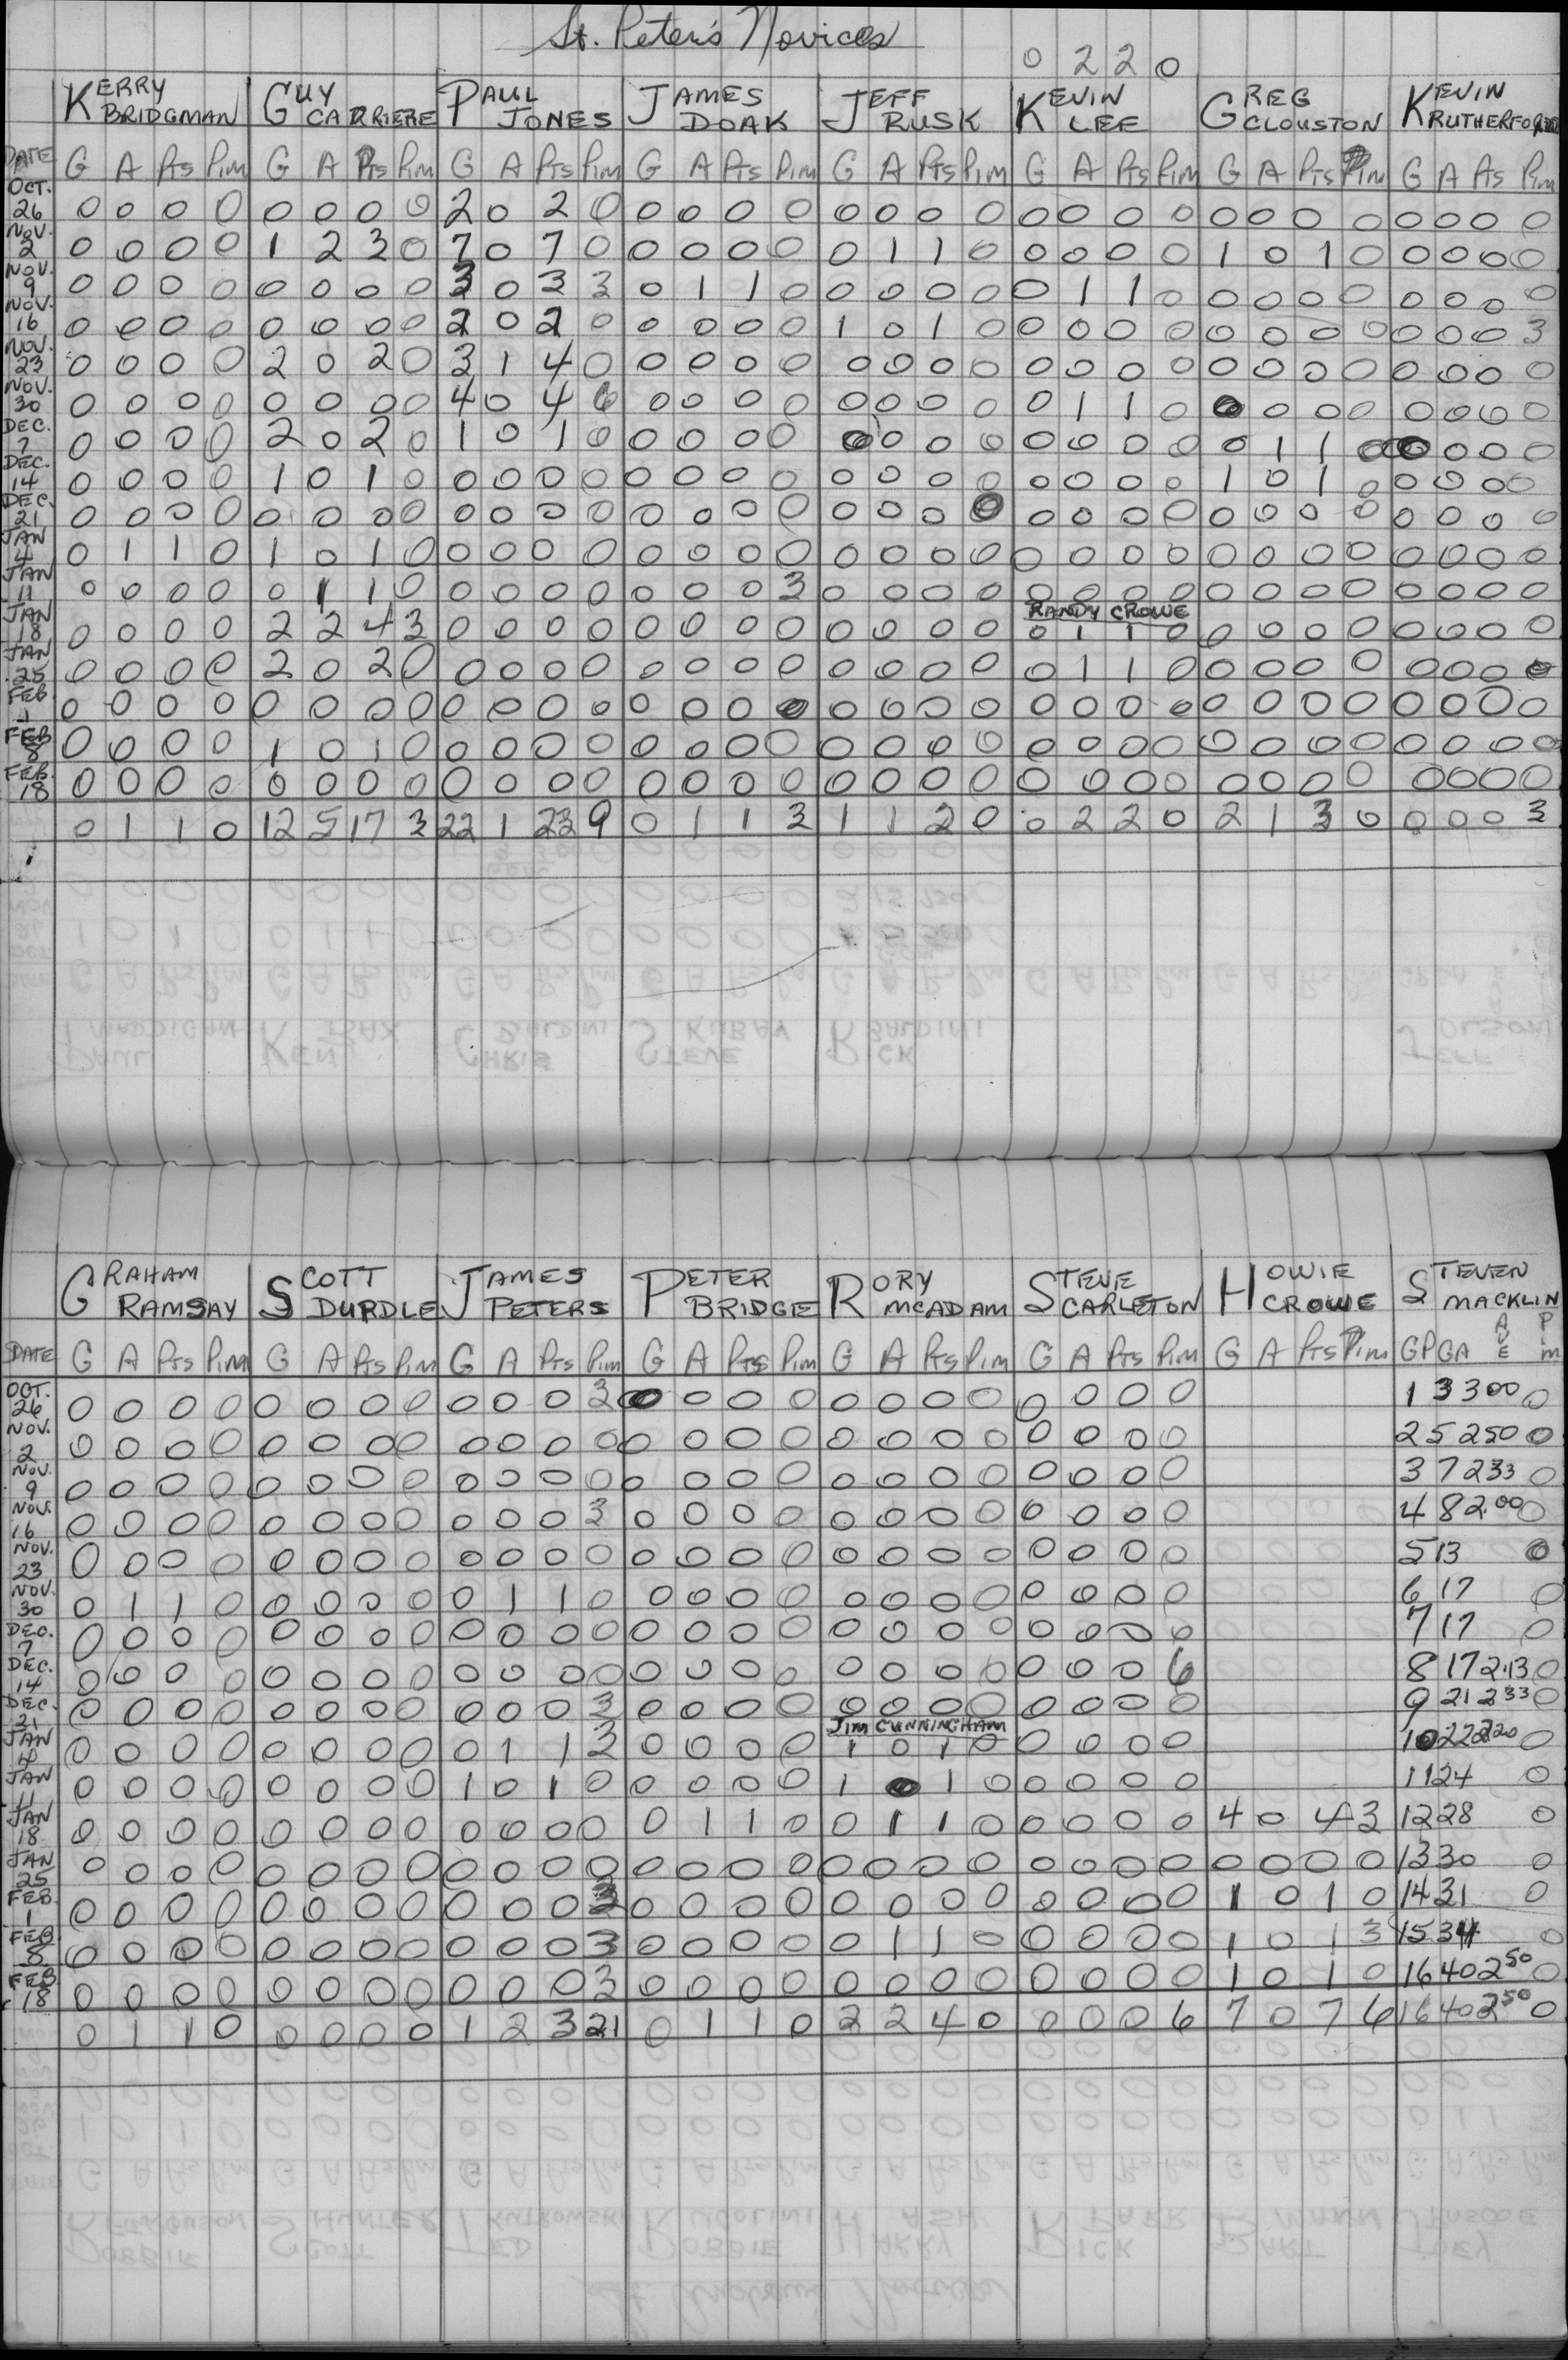 St. Peter's Novices
0 2 2 0
KERRY BRIDGMAN GUY CARRIERE PAUL JONES JAMES DOAK JEFF RUSK KEVIN LEE GREG CLOUSTON KEVIN RUTHERFORD
DATE G A Pts Pim G A Pts Pim G A Pts Pim G A Pts Pim G A Pts Pim G A Pts Pim G A Pts Pim G A Pts Pim
OCT. 26 0 0 0 0 0 0 0 0 2 0 2 0 0 0 0 0 0 0 0 0 0 0 0 0 0 0 0 0 0 0 0 0
NOV. 2 0 0 0 0 1 2 3 0 7 0 7 0 0 0 0 0 0 1 1 0 0 0 0 0 1 0 1 0 0 0 0 0
NOV. 9 0 0 0 0 0 0 0 0 3 0 3 3 0 1 1 0 0 0 0 0 0 1 1 0 0 0 0 0 0 0 0 0
NOV. 16 0 0 0 0 0 0 0 0 2 0 2 0 0 0 0 0 1 0 1 0 0 0 0 0 0 0 0 0 0 0 0 3
NOV. 23 0 0 0 0 2 0 2 0 3 1 4 0 0 0 0 0 0 0 0 0 0 0 0 0 0 0 0 0 0 0 0 0
NOV. 30 0 0 0 0 0 0 0 0 4 0 4 6 0 0 0 0 0 0 0 0 0 1 1 0 0 0 0 0 0 0 0 0
DEC. 7 0 0 0 0 2 0 2 0 1 0 1 0 0 0 0 0 0 0 0 0 0 0 0 0 0 1 1 0 0 0 0 0
DEC. 14 0 0 0 0 1 0 1 0 0 0 0 0 0 0 0 0 0 0 0 0 0 0 0 0 1 0 1 0 0 0 0 0
DEC. 21 0 0 0 0 0 0 0 0 0 0 0 0 0 0 0 0 0 0 0 0 0 0 0 0 0 0 0 0 0 0 0 0
JAN 4 0 1 1 0 1 0 1 0 0 0 0 0 0 0 0 0 0 0 0 0 0 0 0 0 0 0 0 0 0 0 0 0
JAN 11 0 0 0 0 0 1 1 0 0 0 0 0 0 0 0 3 0 0 0 0 0 0 0 0 0 0 0 0 0 0 0 0
RANDY CROWE
JAN 18 0 0 0 0 2 2 4 3 0 0 0 0 0 0 0 0 0 0 0 0 0 1 1 0 0 0 0 0 0 0 0 0
JAN 25 0 0 0 0 2 0 2 0 0 0 0 0 0 0 0 0 0 0 0 0 0 1 1 0 0 0 0 0 0 0 0 0
FEB 1 0 0 0 0 0 0 0 0 0 0 0 0 0 0 0 0 0 0 0 0 0 0 0 0 0 0 0 0 0 0 0 0
FEB 8 0 0 0 0 1 0 1 0 0 0 0 0 0 0 0 0 0 0 0 0 0 0 0 0 0 0 0 0 0 0 0 0
FEB. 18 0 0 0 0 0 0 0 0 0 0 0 0 0 0 0 0 0 0 0 0 0 0 0 0 0 0 0 0 0 0 0 0
0 1 1 0 12 5 17 3 22 1 23 9 0 1 1 3 1 1 2 0 0 2 2 0 2 1 3 0 0 0 0 3
GRAHAM RAMSAY SCOTT DURDLE JAMES PETERS PETER BRIDGE RORY MCADAM STEVE CARLETON HOWIE CROWE STEVEN MACKLIN
DATE G A Pts Pim G A Pts Pim G A Pts Pim G A Pts Pim G A Pts Pim G A Pts Pim G A Pts Pim GP GA AVE PIM
OCT. 26 0 0 0 0 0 0 0 0 0 0 0 3 0 0 0 0 0 0 0 0 0 0 0 0 1 3 3 00 0
NOV. 2 0 0 0 0 0 0 0 0 0 0 0 0 0 0 0 0 0 0 0 0 0 0 0 0 2 5 250 0
NOV. 9 0 0 0 0 0 0 0 0 0 0 0 0 0 0 0 0 0 0 0 0 0 0 0 0 3 7 233 0
NOV. 16 0 0 0 0 0 0 0 0 0 0 0 3 0 0 0 0 0 0 0 0 0 0 0 0 4 8 2.00 0
NOV. 23 0 0 0 0 0 0 0 0 0 0 0 0 0 0 0 0 0 0 0 0 0 0 0 0 5 13 0
NOV. 30 0 1 1 0 0 0 0 0 0 1 1 0 0 0 0 0 0 0 0 0 0 0 0 0 6 17 0
DEC. 7 0 0 0 0 0 0 0 0 0 0 0 0 0 0 0 0 0 0 0 0 0 0 0 0 7 17 0
DEC. 14 0 0 0 0 0 0 0 0 0 0 0 0 0 0 0 0 0 0 0 0 0 0 0 6 8 17 2.13 0
DEC. 21 0 0 0 0 0 0 0 0 0 0 0 3 0 0 0 0 0 0 0 0 0 0 0 0 9 21 233 0
JIM CUNNINGHAM
JAN 4 0 0 0 0 0 0 0 0 0 1 1 3 0 0 0 0 1 0 1 0 0 0 0 0 10 22 220 0
JAN 11 0 0 0 0 0 0 0 0 1 0 1 0 0 0 0 0 1 0 1 0 0 0 0 0 11 24 0
JAN 18 0 0 0 0 0 0 0 0 0 0 0 0 0 1 1 0 0 1 1 0 0 0 0 0 4 0 4 3 12 28 0
JAN 25 0 0 0 0 0 0 0 0 0 0 0 0 0 0 0 0 0 0 0 0 0 0 0 0 0 0 0 0 13 30 0
FEB. 1 0 0 0 0 0 0 0 0 0 0 0 3 0 0 0 0 0 0 0 0 0 0 0 0 1 0 1 0 14 31 0
FEB 8 0 0 0 0 0 0 0 0 0 0 0 3 0 0 0 0 0 1 1 0 0 0 0 0 1 0 1 3 15 34 0
FEB 18 0 0 0 0 0 0 0 0 0 0 0 3 0 0 0 0 0 0 0 0 0 0 0 0 1 0 1 0 16 40 2 50 0
0 1 1 0 0 0 0 0 1 2 3 21 0 1 1 0 2 2 4 0 0 0 0 6 7 0 7 6 16 40 2 50 0